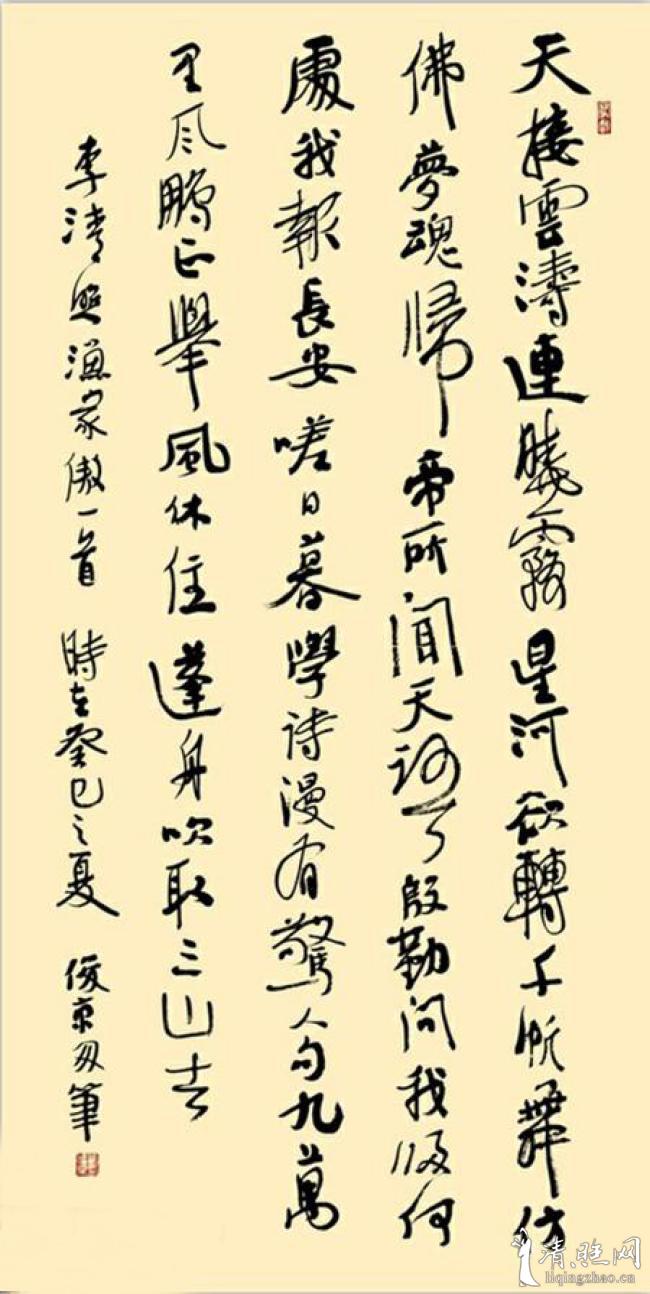 天接雲濤連曉霧星河欲轉千帆舞仿
佛夢魂歸帝所聞天語殷勤問我歸何
處我報長安嗟日暮學詩漫有驚人句九萬
里风鵬正舉風休住蓬舟吹取三山去
李清照漁家傲一首 時在癸巳之夏 俊京 筆
清照网
liqingzhao.cn